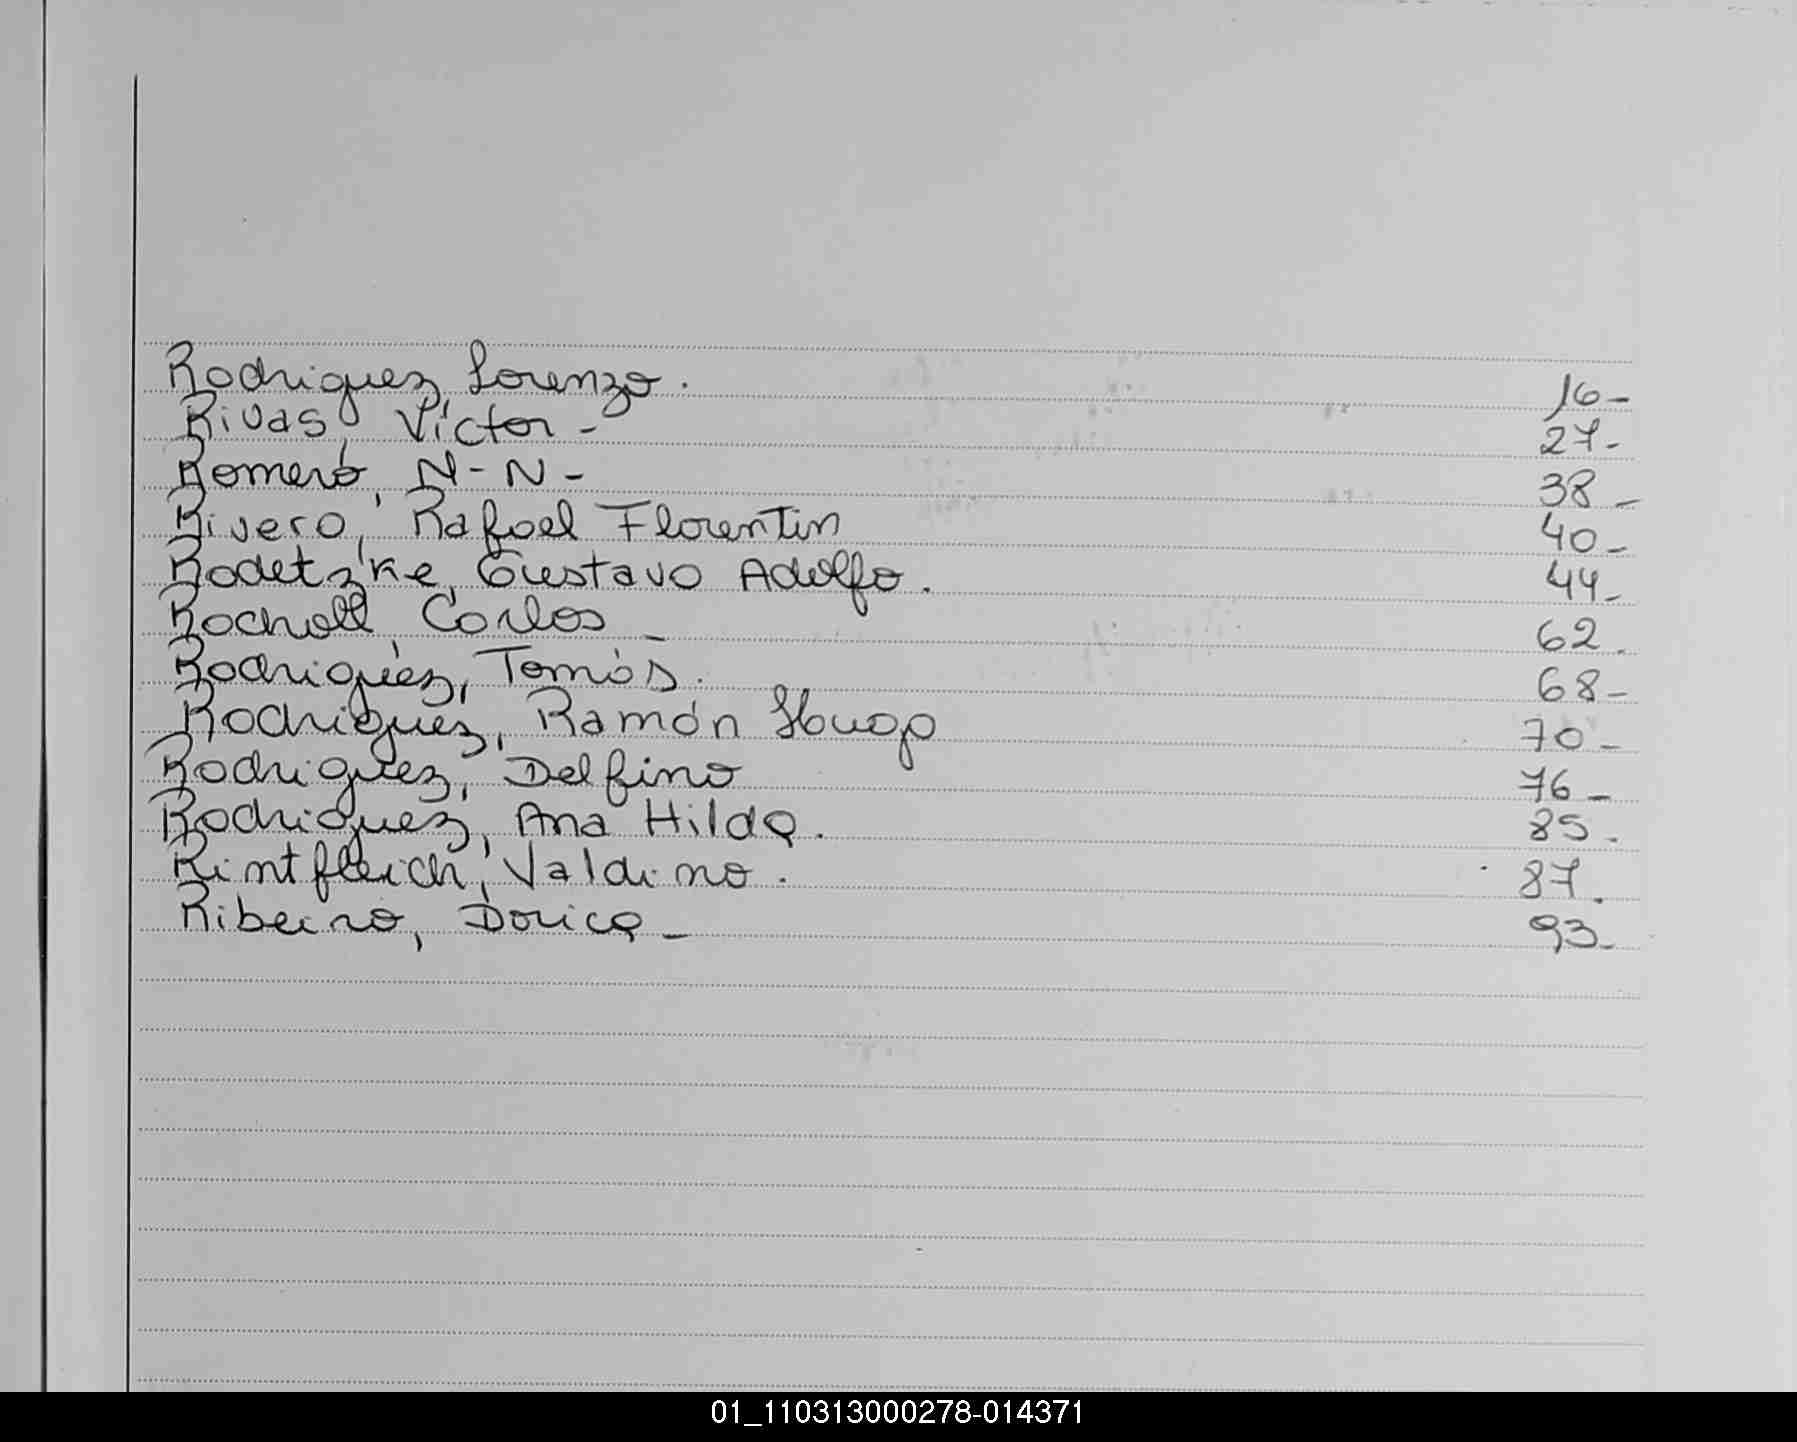 Rodriguez Lorenzo. 16-
Rivas, Víctor - 27-
Romero, N-N- 38-
Rivero, Rafael Florentin 40-
Rodetzke, Gustavo Adolfo. 44-
Rocholl, Carlos - 62.
Rodriguez, Tomás. 68-
Rodriguez, Ramón Hugo 70-
Rodriguez, Delfino 76-
Rodriguez, Ana Hilda. 85.
Rintfleich, Valdino. 87.
Ribeiro, Dorica - 93-
01_110313000278-014371